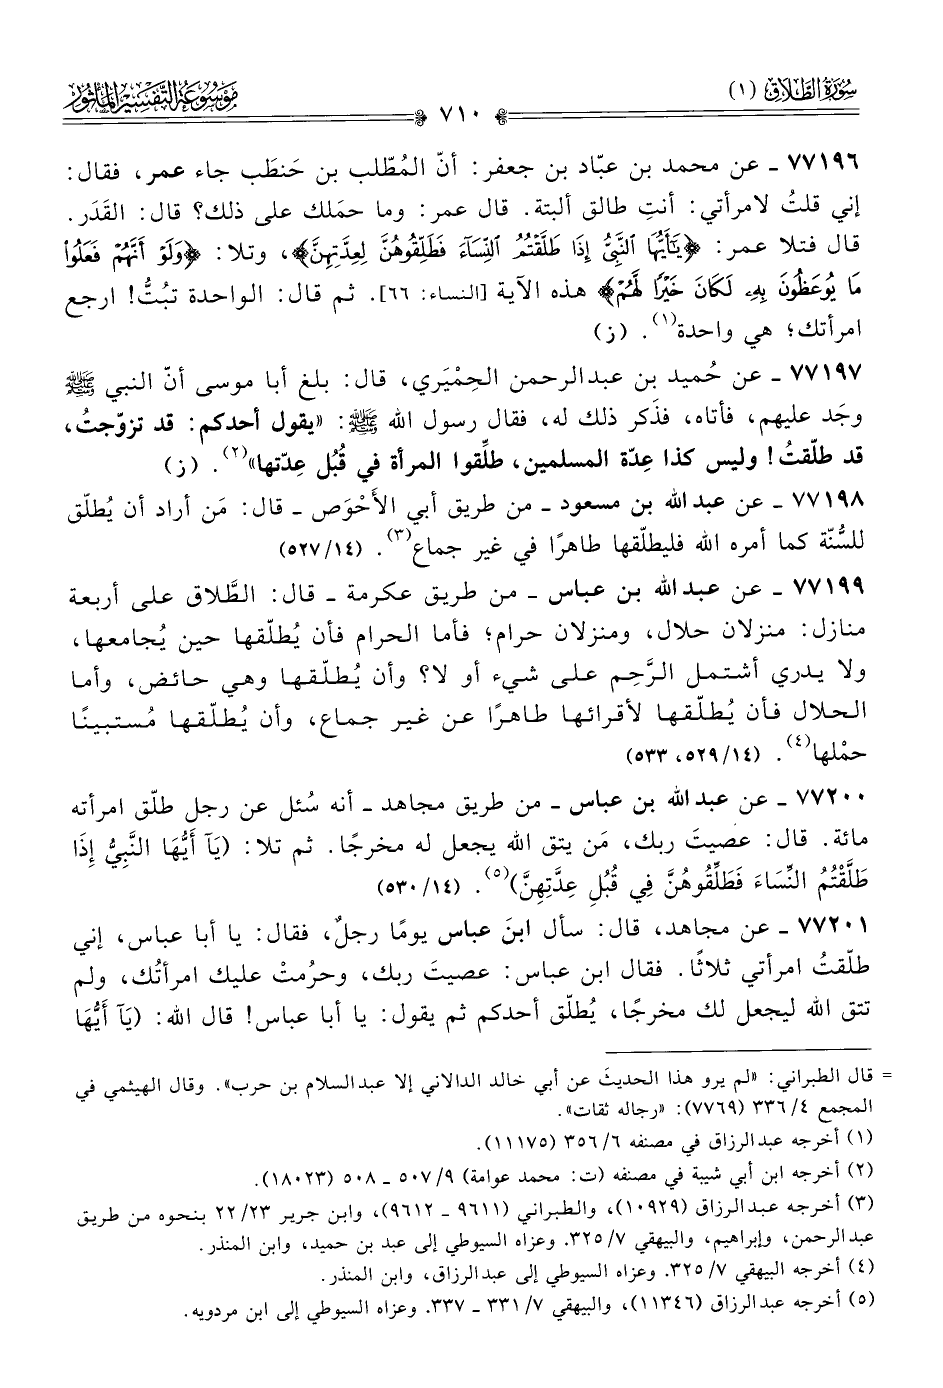 سُورَةُ الطَّلَاقِ (١)
٧١٠
مَوْسُوعَةُ التَّفْسِيرِ المَأْثُورِ
٧٧١٩٦ ـ عن محمد بن عبّاد بن جعفر: أنّ المُطّلب بن حَنطَب جاء عمر، فقال:
إني قلتُ لامرأتي: أنتِ طالق ألبتة. قال عمر: وما حمَلك على ذلك؟ قال: القَدَر.
قال فتلا عمر: ﴿يَٰٓأَيُّهَا ٱلنَّبِىُّ إِذَا طَلَّقْتُمُ ٱلنِّسَآءَ فَطَلِّقُوهُنَّ لِعِدَّتِهِنَّ﴾، وتلا: ﴿وَلَوْ أَنَّهُمْ فَعَلُوا۟
مَا يُوعَظُونَ بِهِۦ لَكَانَ خَيْرًا لَّهُمْ﴾ هذه الآية [النساء: ٦٦]. ثم قال: الواحدة تبُتُّ! ارجع
امرأتك؛ هي واحدة(١). (ز)
٧٧١٩٧ ـ عن حُميد بن عبدالرحمن الحِمْيَري، قال: بلغ أبا موسى أنّ النبي ﷺ
وجَد عليهم، فأتاه، فذَكر ذلك له، فقال رسول الله ﷺ: «يقول أحدكم: قد تزوّجتُ،
قد طلّقتُ! وليس كذا عِدّة المسلمين، طلِّقوا المرأة في قُبُل عِدّتها»(٢). (ز)
٧٧١٩٨ ـ عن عبدالله بن مسعود ـ من طريق أبي الأَحْوَص ـ قال: مَن أراد أن يُطلّق
للسُّنّة كما أمره الله فليطلّقها طاهرًا في غير جماع(٣). (٥٢٧/١٤)
٧٧١٩٩ ـ عن عبدالله بن عباس ـ من طريق عكرمة ـ قال: الطَّلاق على أربعة
منازل: منزلان حلال، ومنزلان حرام؛ فأما الحرام فأن يُطلّقها حين يُجامعها،
ولا يدري أشتمل الرَّحِم على شيء أو لا؟ وأن يُطلّقها وهي حائض، وأما
الحلال فأن يُطلّقها لأقرائها طاهرًا عن غير جماع، وأن يُطلّقها مُستبينًا
حمْلها(٤). (٥٢٩/١٤، ٥٣٣)
٧٧٢٠٠ ـ عن عبدالله بن عباس ـ من طريق مجاهد ـ أنه سُئل عن رجل طلّق امرأته
مائة. قال: عصيتَ ربك، مَن يتق الله يجعل له مخرجًا. ثم تلا: (يَآ أَيُّهَا النَّبِيُّ إِذَا
طَلَّقْتُمُ النِّسَاءَ فَطَلِّقُوهُنَّ فِي قُبُلِ عِدَّتِهِنَّ)(٥). (٥٣٠/١٤)
٧٧٢٠١ ـ عن مجاهد، قال: سأل ابنَ عباس يومًا رجلٌ، فقال: يا أبا عباس، إني
طلّقتُ امرأتي ثلاثًا. فقال ابن عباس: عصيتَ ربك، وحرُمتْ عليك امرأتُك، ولم
تتق الله ليجعل لك مخرجًا، يُطلّق أحدكم ثم يقول: يا أبا عباس! قال الله: (يَآ أَيُّهَا
= قال الطبراني: «لم يرو هذا الحديثَ عن أبي خالد الدالاني إلا عبدالسلام بن حرب». وقال الهيثمي في
المجمع ٤/ ٣٣٦ (٧٧٦٩): «رجاله ثقات».
(١) أخرجه عبدالرزاق في مصنفه ٦/ ٣٥٦ (١١١٧٥).
(٢) أخرجه ابن أبي شيبة في مصنفه (ت: محمد عوامة) ٩/ ٥٠٧ ـ ٥٠٨ (١٨٠٢٣).
(٣) أخرجه عبدالرزاق (١٠٩٢٩)، والطبراني (٩٦١١ ـ ٩٦١٢)، وابن جرير ٢٣/ ٢٢ بنحوه من طريق
عبدالرحمن، وإبراهيم، والبيهقي ٧/ ٣٢٥. وعزاه السيوطي إلى عبد بن حميد، وابن المنذر.
(٤) أخرجه البيهقي ٧/ ٣٢٥. وعزاه السيوطي إلى عبدالرزاق، وابن المنذر.
(٥) أخرجه عبدالرزاق (١١٣٤٦)، والبيهقي ٧/ ٣٣١ ـ ٣٣٧. وعزاه السيوطي إلى ابن مردويه.